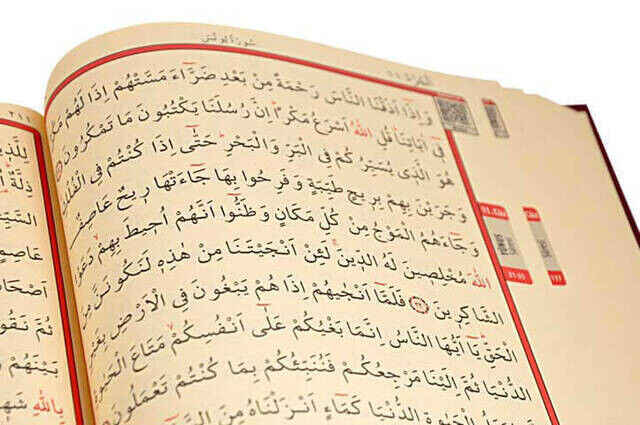 سُورَةُ يُونُسَ
وَاِذَٓا اَذَقْنَا النَّاسَ رَحْمَةً مِنْ بَعْدِ ضَرَّٓاءَ مَسَّتْهُمْ اِذَا لَهُمْ
ف۪ٓي اٰيَاتِنَاۜ قُلِ اللّٰهُ اَسْرَعُ مَكْرًاۜ اِنَّ رُسُلَنَا يَكْتُبُونَ مَا تَمْكُرُونَ
هُوَ الَّذ۪ي يُسَيِّرُكُمْ فِي الْبَرِّ وَالْبَحْرِۜ حَتّٰٓى اِذَا كُنْتُمْ فِي الْفُلْ
وَجَرَيْنَ بِهِمْ بِر۪يحٍ طَيِّبَةٍ وَفَرِحُوا بِهَا جَٓاءَتْهَا ر۪يحٌ عَاصِفٌ
وَجَٓاءَهُمُ الْمَوْجُ مِنْ كُلِّ مَكَانٍ وَظَنُّٓوا اَنَّهُمْ اُح۪يطَ بِهِمْۙ دَعَوُا
اللّٰهَ مُخْلِص۪ينَ لَهُ الدّ۪ينَۚ لَئِنْ اَنْجَيْتَنَا مِنْ هٰذِه۪ لَنَكُونَنَّ مِنَ
الشَّاكِر۪ينَ ٢٢ فَلَمَّٓا اَنْجٰيهُمْ اِذَا هُمْ يَبْغُونَ فِي الْاَرْضِ بِغَيْرِ
الْحَقِّۜ يَٓا اَيُّهَا النَّاسُ اِنَّمَا بَغْيُكُمْ عَلٰٓى اَنْفُسِكُمْۙ مَتَاعَ الْحَيٰوةِ
الدُّنْيَاۘ ثُمَّ اِلَيْنَا مَرْجِعُكُمْ فَنُنَبِّئُكُمْ بِمَا كُنْتُمْ تَعْمَلُونَ
الْحَيٰوةِ الدُّنْيَا كَمَٓاءٍ اَنْزَلْنَاهُ مِنَ
YÛNUS
21-25
٢١١
لِلَّذ۪ي
ذِلَّةٌۜ
السَّيِّـ
عَاصِمٍ
اَصْحَا
ثُمَّ نَقُو
بَيْنَهُمْ
بِاللّٰهِ شَه۪